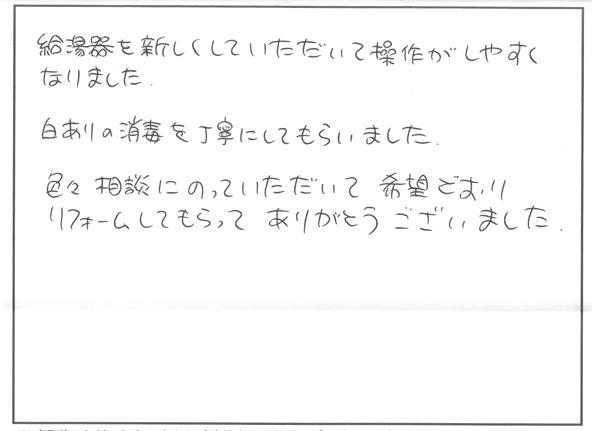 給湯器を新しくしていただいて操作がしやすく
なりました.
白ありの消毒を丁寧にしてもらいました.
色々相談にのっていただいて 希望どおり
リフォームしてもらって ありがとうございました.